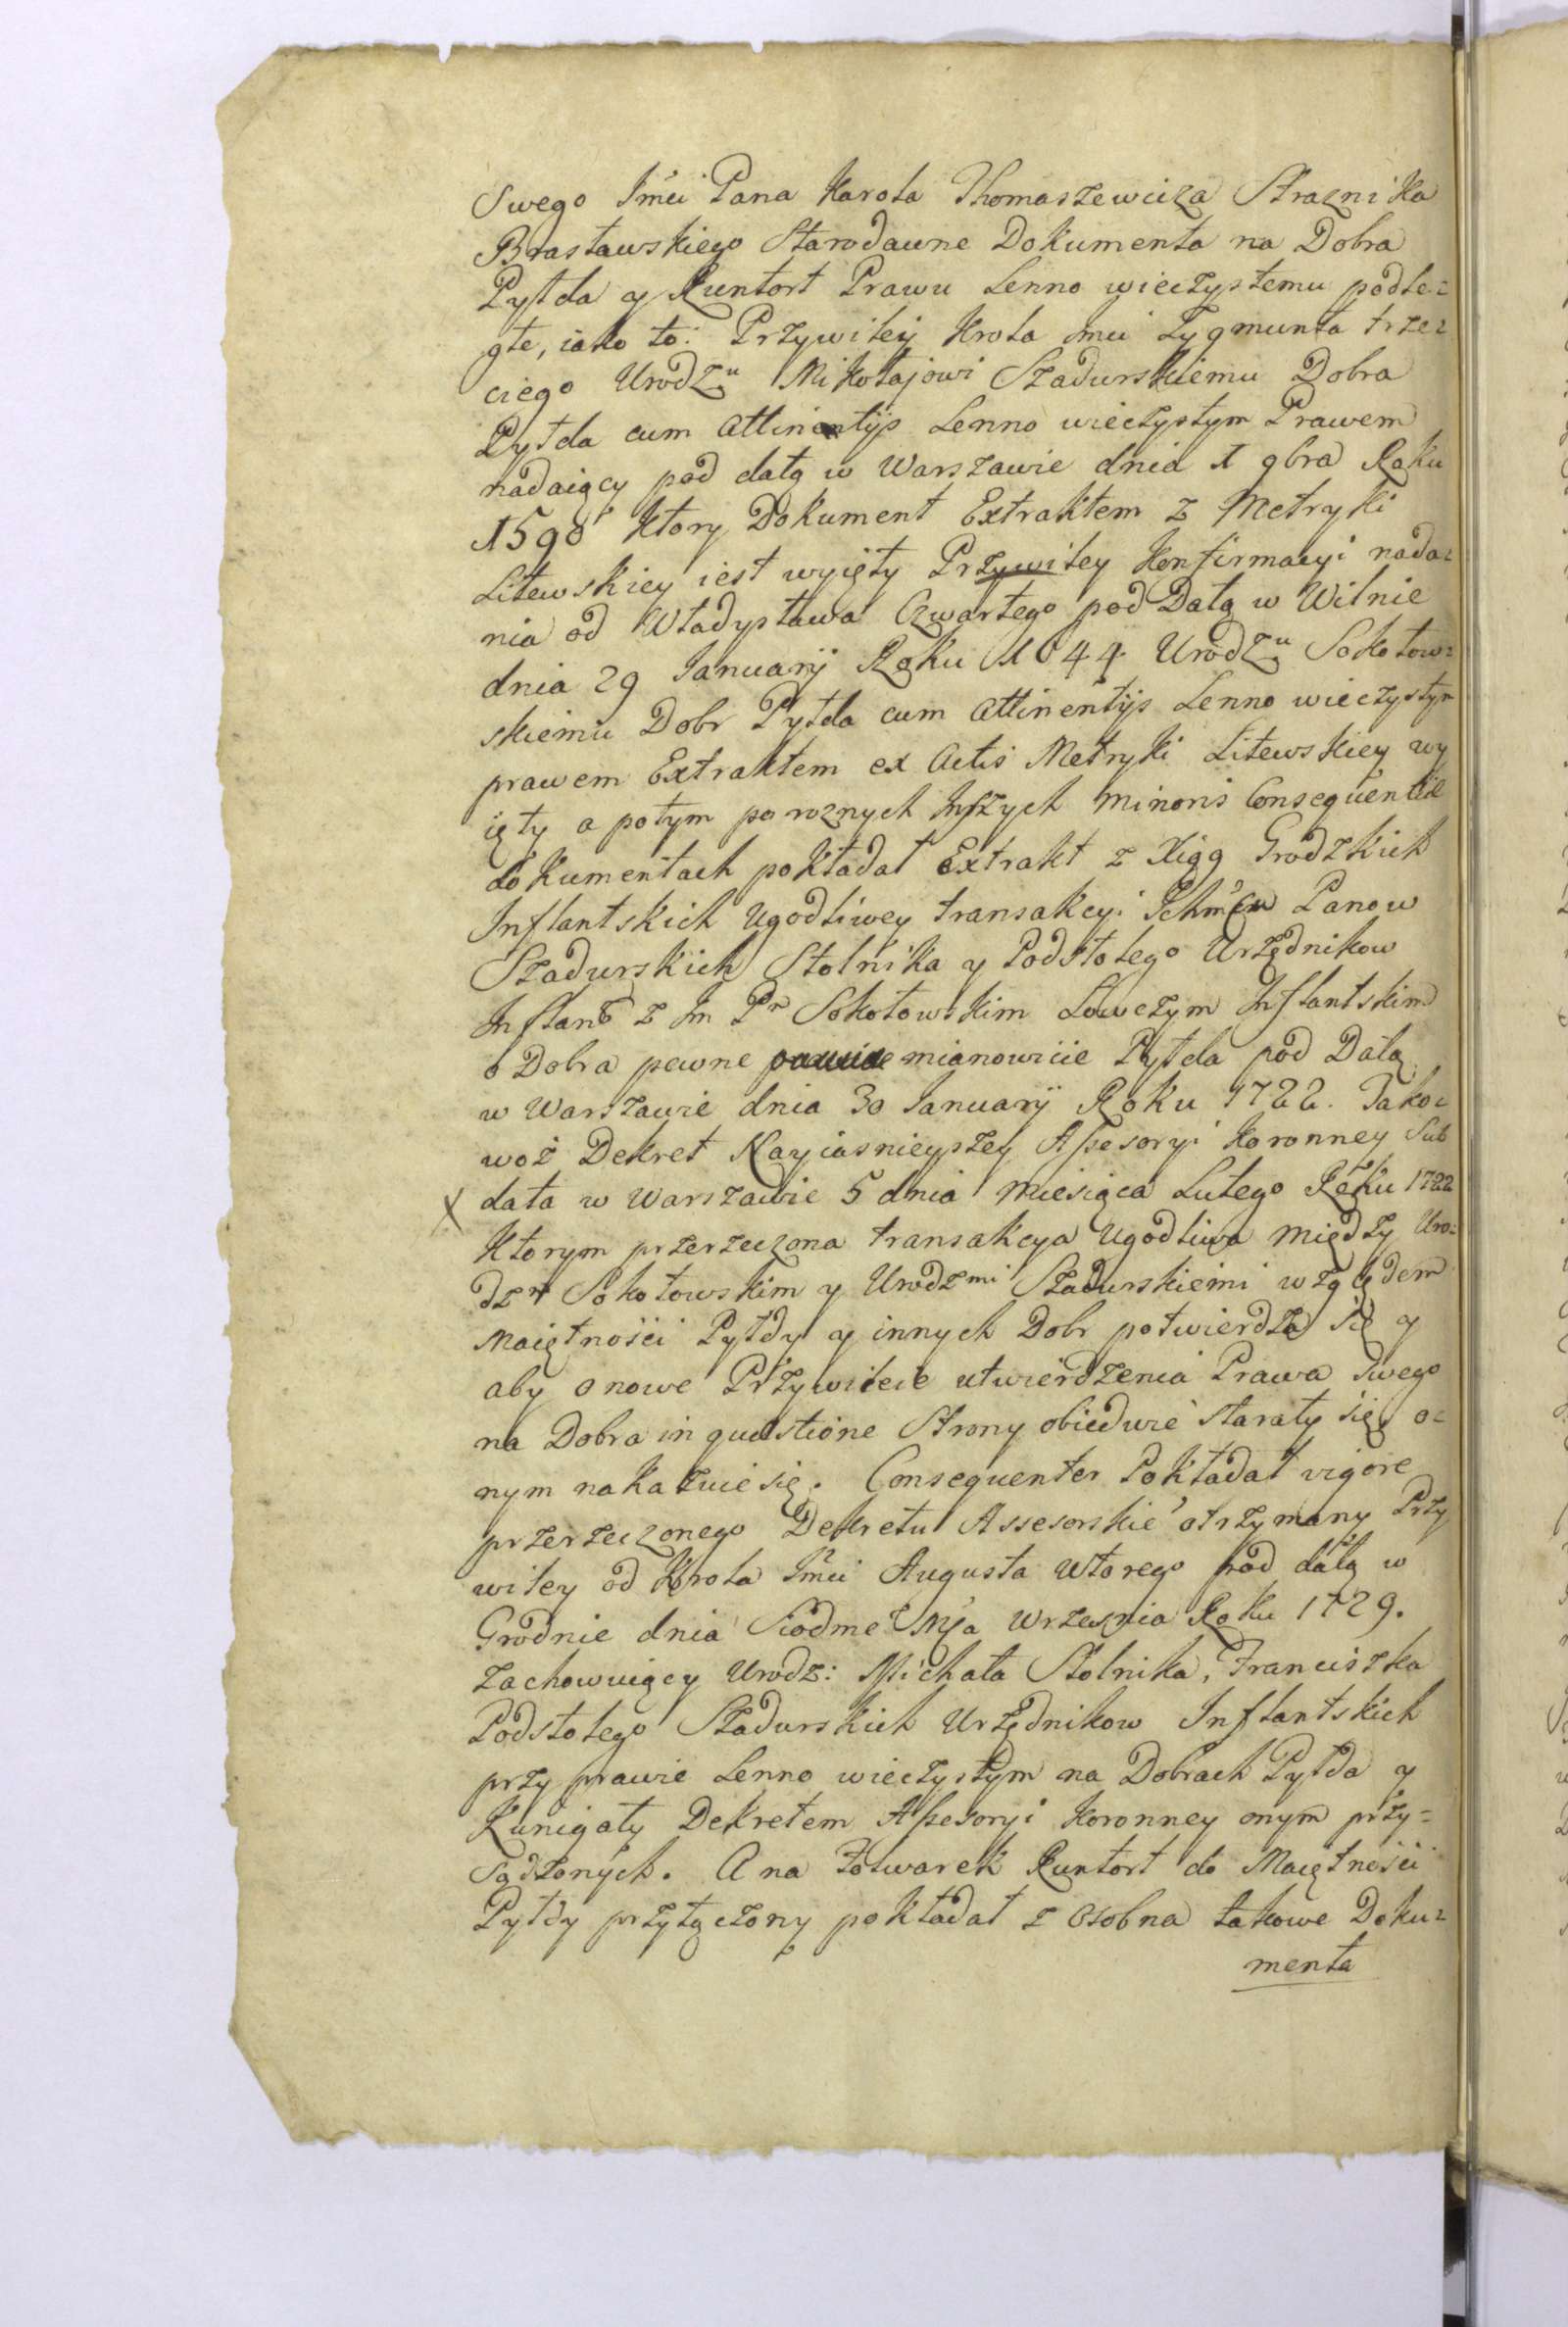 Swego Jmci Pana Karola Thomaszewicza Straznika
Brasławskiego Starodawne Dokumenta na Dobra
Pyłda y Runtort Prawu Lenno wieczystemu podle=
głe, iako to: Przywiley Krola Jmci Zygmunta trze=
ciego Urodz.u Mikołajowi Szadurskiemu Dobra
Pyłda cum attinentijs Lenno wieczystym Prawem
nadaiący pod datą w Warszawie dnia 1 9bra Roku
1598 ktory Dokument Extraktem z Metryki
Litewskiey iest wyięty Przywiley konfirmacyi nada=
nia od Władysława Czwartego pod Datą w Wilnie
dnia 29 Januarij Roku 1644 Urodz.u Sokołow=
skiemu Dobr Pyłda cum attinentijs Lenno wieczystym
prawem Extraktem ex Actis Metryki Litewskiey wy
ięty a potym po roznych Inszych minoris Consequentiae
dokumentach pokładał Extrakt z Xiąg Grodzkich
Inflantskich Ugodliwey transakcyi Ichmćw Panow
Szadurskich Stolnika y Podstolego Urzędnikow
Inflant z Jm Pn Sokołowskim Łowczym Inflantskim
o Dobra pewne mianowicie Pyłda pod Datą
w Warszawie dnia 30 Januarij Roku 1722. Jako=
woż Dekret Nayiasnieyszey Assesoryi Koronney Sub
X data w Warszawie 5 dnia Miesiąca Lutego Roku 1722
Ktorym przerzeczona transakcya Ugodliwa między Uro=
dzm Sokołowskim y Urodzmi Szadurskiemi względem
Maiętności Pyłdy y innych Dobr potwierdza się y
aby o nowe Przywileie utwierdzenia Prawa swego
na Dobra in questione Strony obiedwie starały się, o=
nym nakazuie się. Consequenter Pokładał vigore
przerzeczonego Dekretu Assesorskie° otrzymany Przy
wiley od Krola Jmci Augusta Wtorego pod datą w
Grodnie dnia Siodme° Mca Wrzesnia Roku 1729.
zachowuiący Urodz: Michała Stolnika, Franciszka
Podstolego Szadurskich Urzędnikow Inflantskich
przy prawie Lenno wieczystym na Dobrach Pyłda y
Kunigały Dekretem Assesoryi Koronney onym przy=
sądzonych. A na Folwarek Runtort do Maiętności
Pyłdy przyłączony pokładał z Osobna takowe Doku=
menta